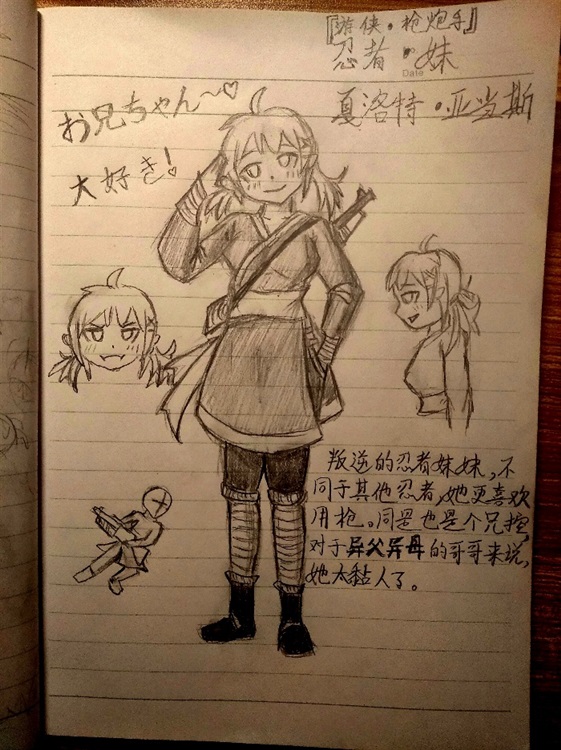 『游侠·枪炮手』
忍者·妹
Date
夏洛特·亚当斯
お兄ちゃん～♡
大好き!
叛逆的忍者妹妹,不
同于其他忍者,她更喜欢
用枪。同是也是个兄控
对于异父异母的哥哥来说,
她太黏人了。